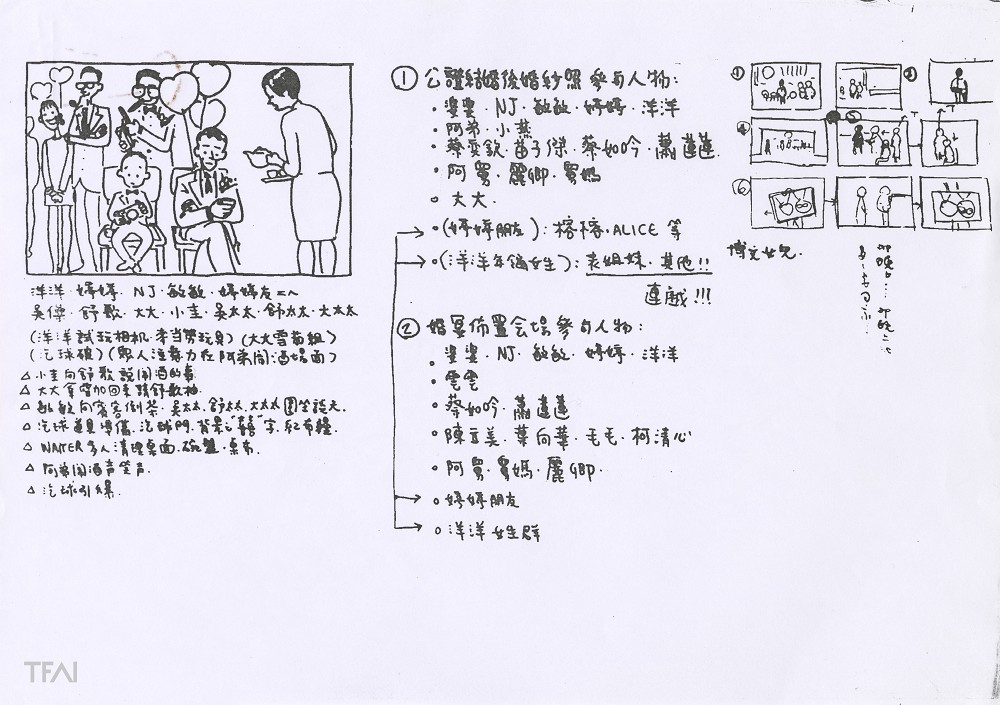 洋洋・婷婷・NJ・敏敏・婷婷友二人
吳傑・舒歌・大大・小圭・吳太太・舒太太・大太太
(洋洋試玩相机・李当勞玩具)(大大雪茄組)
(汽球破)(眾人注意力在阿弟鬧酒場面)
△ 小圭向舒歌說鬧酒的事
△ 敏敏向賓客倒茶・吳太太.舒太太.大太太圍坐談天.
△ 汽球道具準備.汽球門.背景之"囍"字.紅布幔.
△ WAITER多人清理桌面.碗盤・桌布.
△ 阿弟鬧酒声笑声.
△ 汽球引爆.
① 公證結婚後婚紗照參与人物:
・婆婆・NJ・敏敏・婷婷・洋洋
・阿弟・小燕
・蔡奕欽.苗子傑・蔡如吟・蕭蓮蓮.
・阿舅・麗卿・舅媽
。大大.
。(婷婷朋友):榕榕・ALICE 等
。(洋洋年齡女生):表姐妹・其他!!
連戲!!!
② 婚宴佈置会場參与人物:
・婆婆・NJ・敏敏・婷婷・洋洋
・雲雲
・蔡如吟・蕭蓮蓮
・陳立美・葉向華・毛毛・柯清心
・阿舅・舅媽・麗卿.
。婷婷朋友
。洋洋女生群
①
②
④
⑥
T
T
TFAI